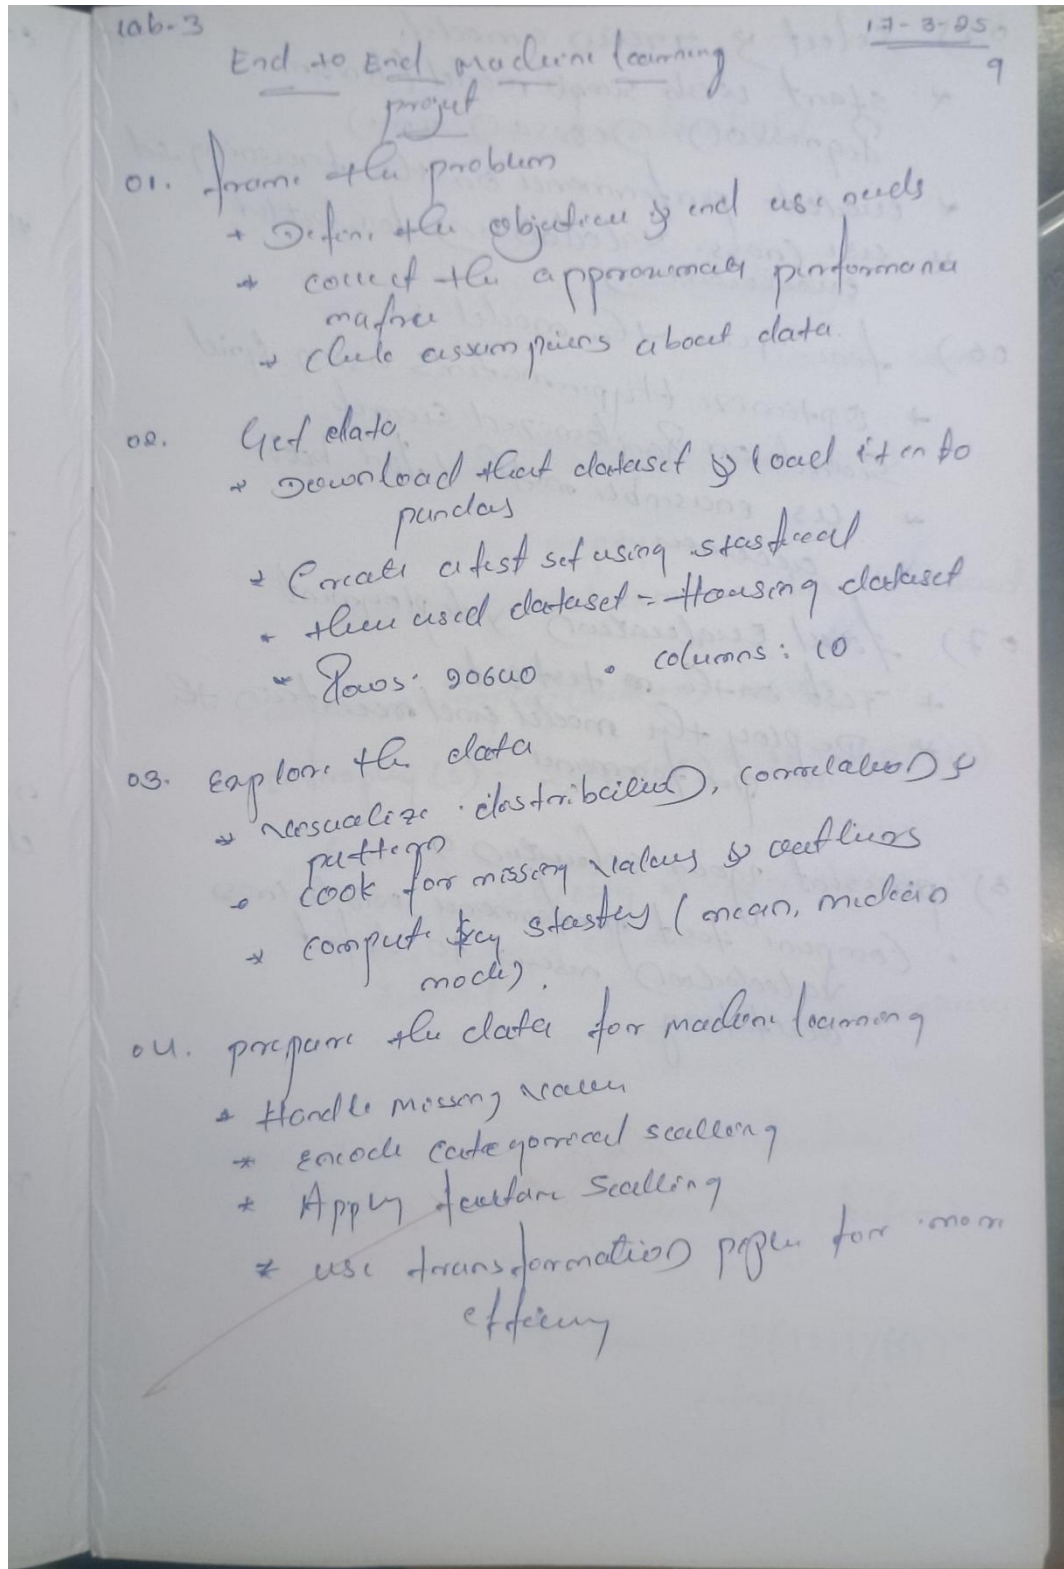 Lab-3
17-3-25
9
End to End machine learning
project
01. frame the problem
* Define the objective & end use needs
* correct the approximate performance
matrix
* check assumptions about data
02. Get data
* Download that dataset & load it into
pandas
* Create a test set using stastical
* then used dataset = Housing dataset
* Rows: 20640 • columns: 10
03. Explore the data
* visualize distribution, correlation &
pattern
* Look for missing values & outliers
* compute key stastics (mean, median
mode).
04. prepare the data for machine learning
* Handle missing values
* Encode categorical scalling
* Apply feature Scalling
* use transformation for more
efficiency